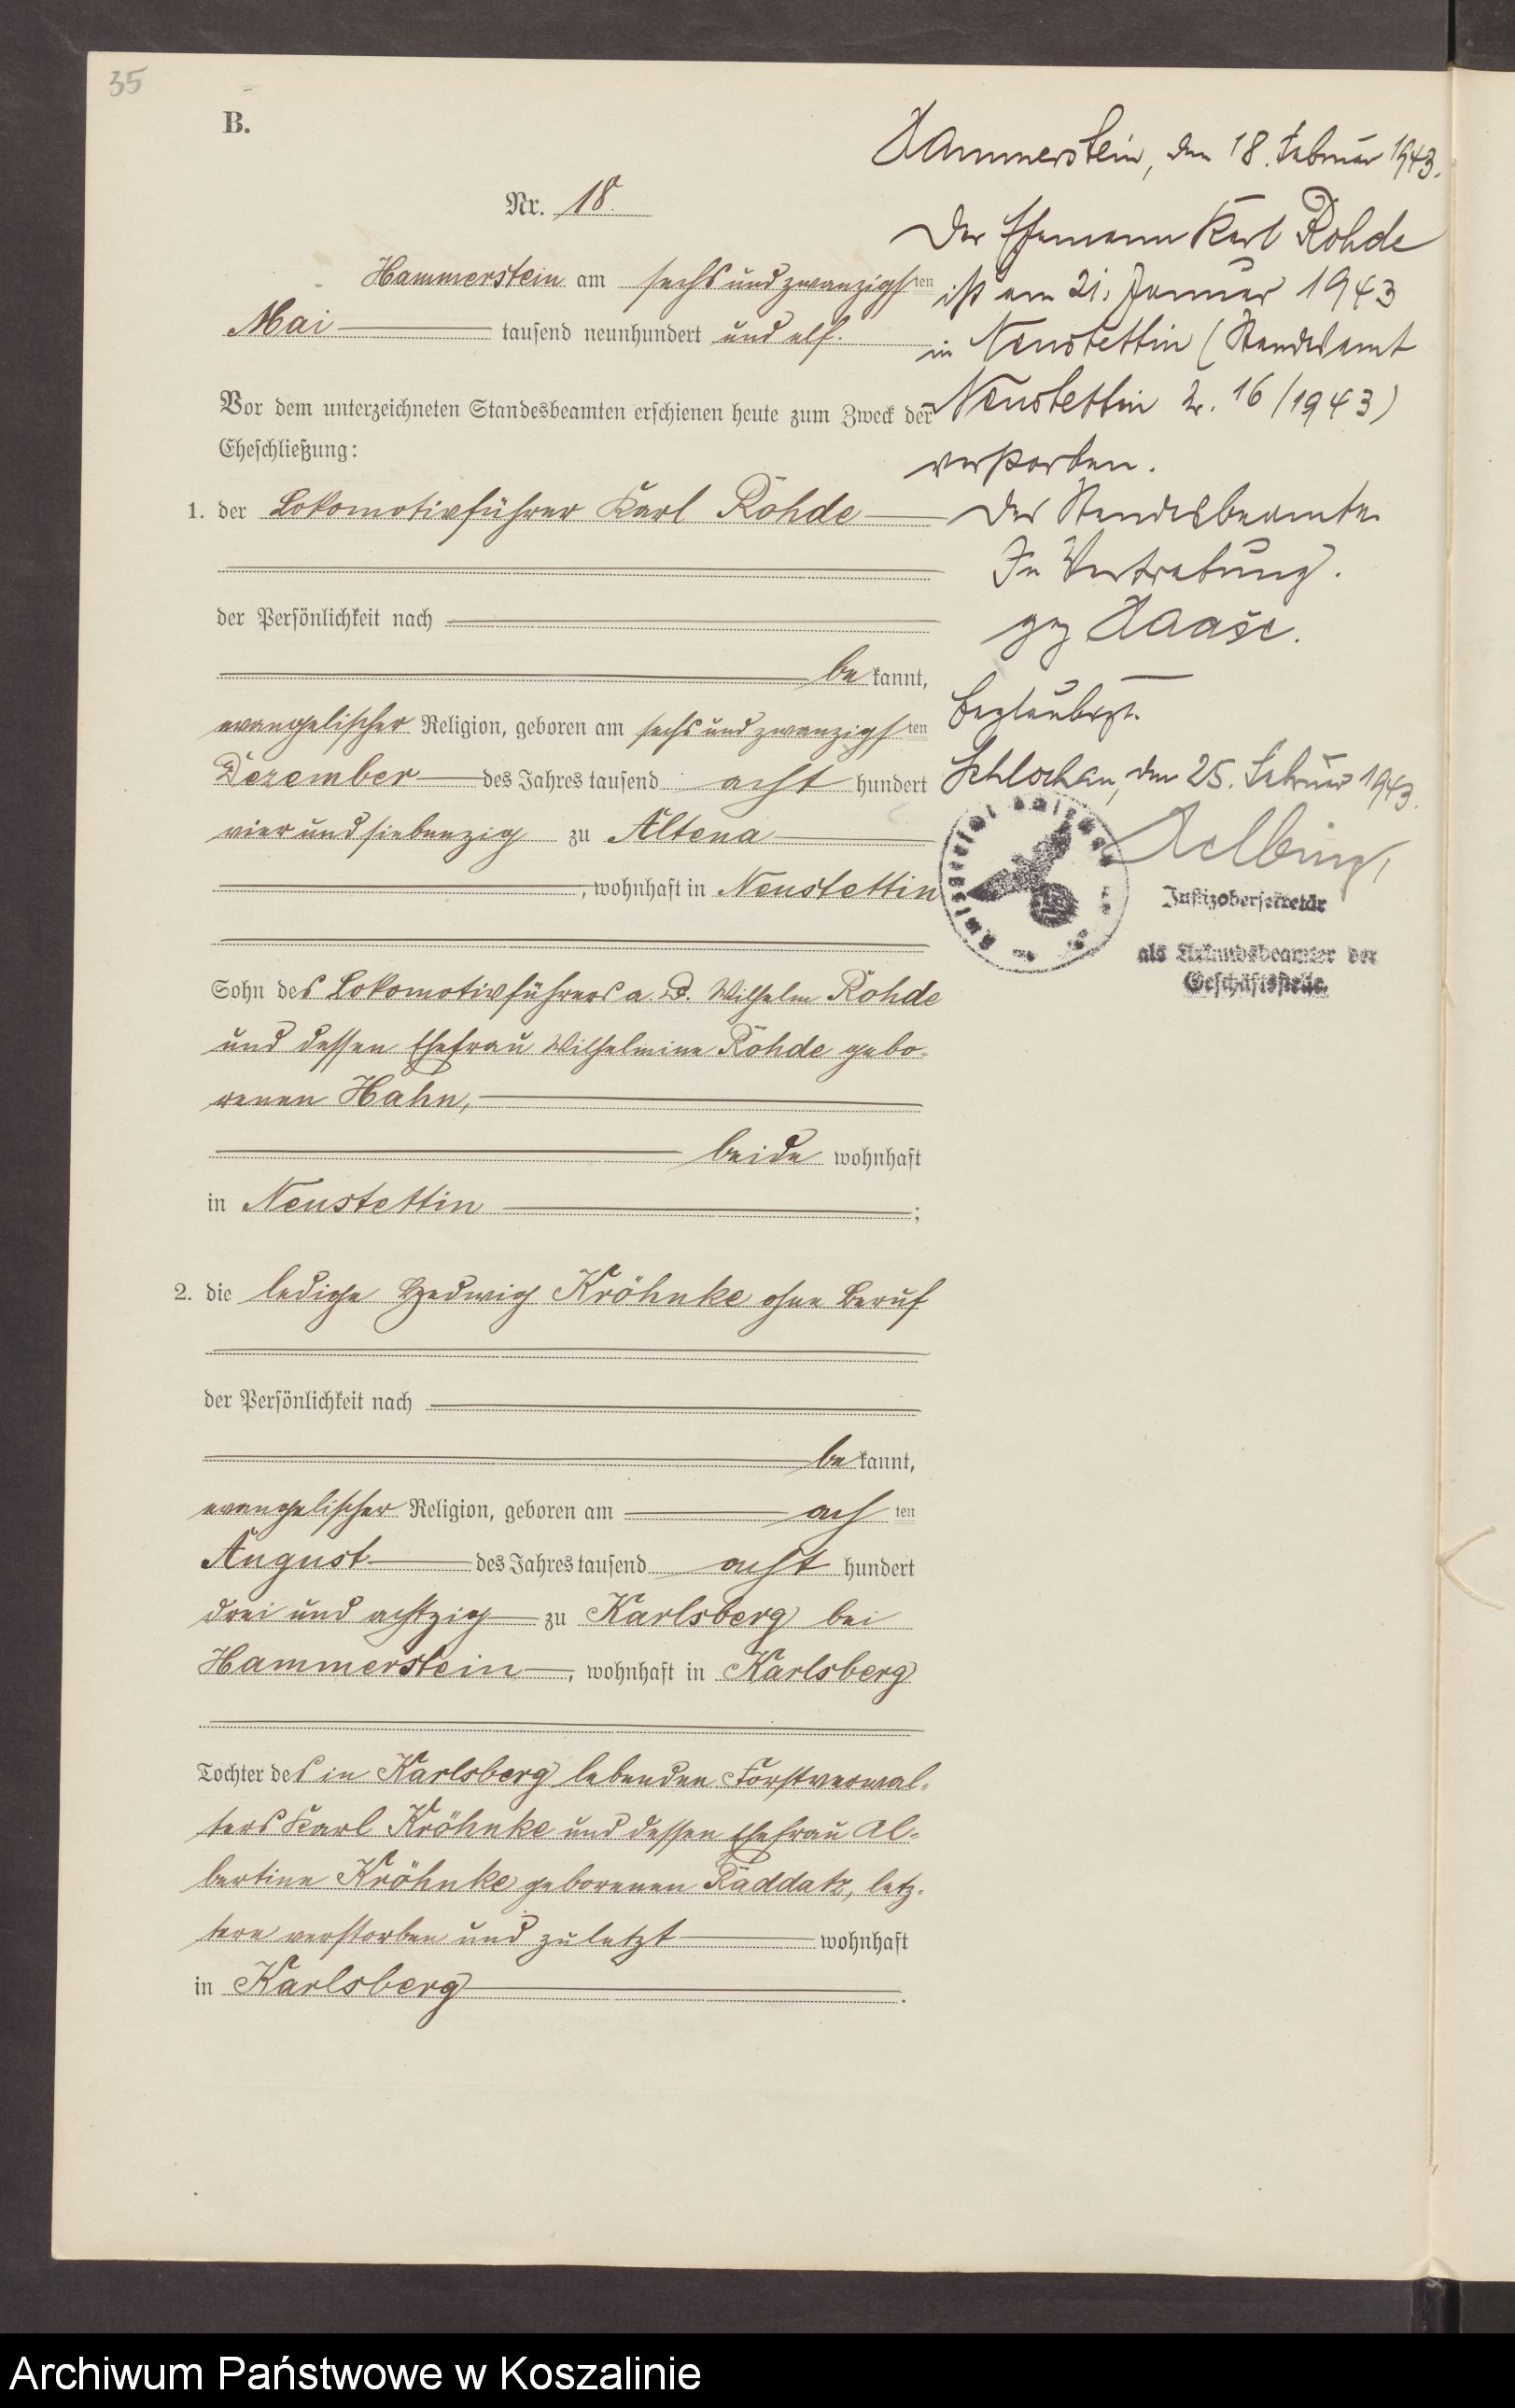 35
B.
Nr. 18.
Hammerstein am sechs und zwanzigsten
Mai tausend neunhundert und elf.
Vor dem unterzeichneten Standesbeamten erschienen heute zum Zweck der
Eheschließung:
1. der Lokomotivführer Karl Rohde
der Persönlichkeit nach
be kannt,
evangelischer Religion, geboren am sechs und zwanzigsten
Dezember des Jahres tausend acht hundert
vier und siebenzig zu Altena
, wohnhaft in Neustettin
Sohn des Lokomotivführers a. D. Wilhelm Rohde
und dessen Ehefrau Wilhelmine Rohde gebo-
renen Hahn,
beide wohnhaft
in Neustettin ;
2. die ledige Hedwig Kröhnke ohne Beruf
der Persönlichkeit nach
be kannt,
evangelischer Religion, geboren am achten
August des Jahres tausend acht hundert
drei und achtzig zu Karlsberg bei
Hammerstein, wohnhaft in Karlsberg
Tochter des in Karlsberg lebenden Forstverwal-
ters Karl Kröhnke und dessen Ehefrau Al-
bertine Kröhnke geborenen Raddatz, letz-
tere verstorben und zuletzt wohnhaft
in Karlsberg .
Hammerstein, den 18. Februar 1943.
Der Ehemann Karl Rohde
ist am 21. Januar 1943
in Neustettin (Standesamt
Neustettin Nr. 16/1943)
verstorben.
Der Standesbeamte
In Vertretung.
gez Haase.
Beglaubigt.
Schlochau, den 25. Februar 1943.
Helbing,
Justizobersekretär
als Urkundsbeamter der
Geschäftsstelle.
Archiwum Państwowe w Koszalinie